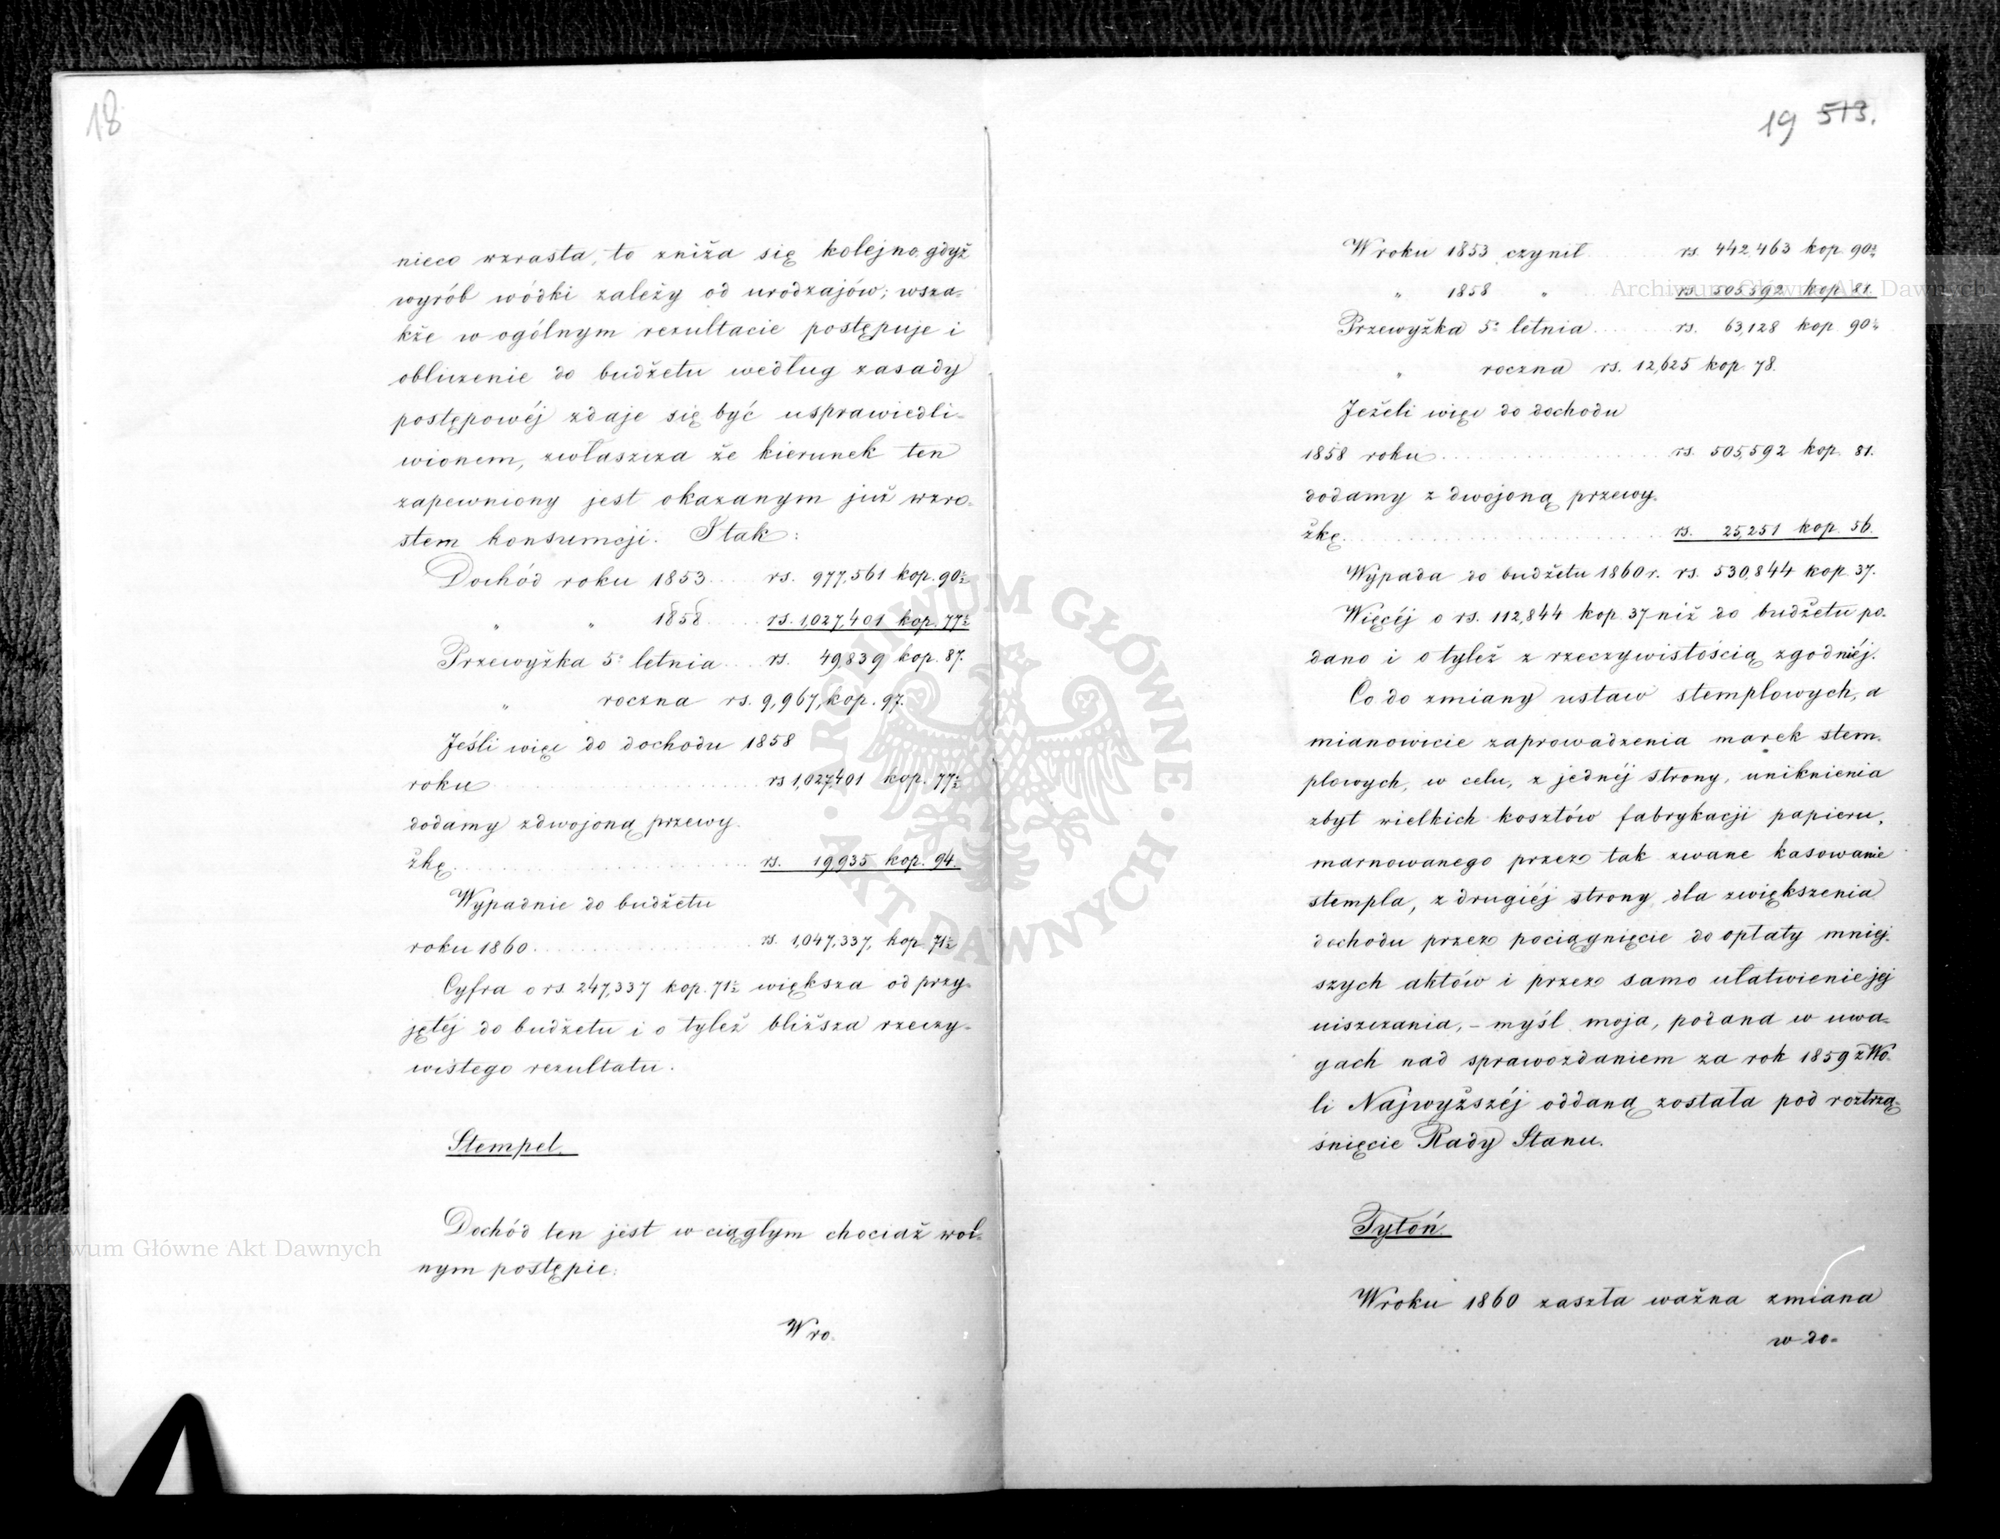 18
nieco wzrasta, to zniża się kolejno, gdyż
wyrób wódki zależy od urodzajów; wsza-
kże w ogólnym rezultacie postępuje i
obliczenie do budżetu według zasady
postępowéj zdaje się być usprawiedli-
wionem, zwłaszcza że kierunek ten
zapewniony jest okazanym już wzro-
stem konsumcji. I tak:
Dochód roku 1853 .... rs. 977,561 kop. 90½
" " 1858 .... rs. 1,027,401 kop. 77½
Przewyżka 5º letnia ... rs. 49,839 kop. 87.
" roczna rs. 9,967, kop. 97.
Jeśli więc do dochodu 1858
roku ........ rs 1,027,401 kop. 77½
dodamy zdwojoną przewy-
żkę ........ rs. 19,935 kop. 94.
Wypadnie do budżetu
roku 1860 ........ rs. 1,047,337, kop. 71½
Cyfra o rs. 247,337 kop. 71½ większa od przy-
jętéj do budżetu i o tyleż bliższa rzeczy-
wistego rezultatu.
Stempel.
Dochód ten jest w ciągłym chociaż wol-
nym postępie:
W ro-
19 513.
W roku 1853 czynił .... rs. 442,463 kop. 90½
" 1858 " .... rs. 505,592 kop. 81.
Przewyżka 5º letnia .... rs. 63,128 kop. 90½
" roczna rs. 12,625 kop. 78.
Jeżeli więc do dochodu
1858 roku ........ rs. 505,592 kop. 81.
dodamy zdwojoną przewy-
żkę ........ rs. 25,251 kop. 56.
Wypada do budżetu 1860 r. rs. 530,844 kop. 37.
Więcéj o rs. 112,844 kop. 37 niż do budżetu po-
dano i o tyleż z rzeczywistością zgodniéj.
Co do zmiany ustaw stemplowych, a
mianowicie zaprowadzenia marek stem-
plowych, w celu, z jednéj strony, uniknienia
zbyt wielkich kosztów fabrykacji papieru,
marnowanego przez tak zwane kasowanie
stempla, z drugiéj strony dla zwiększenia
dochodu przez pociągnięcie do opłaty mniej-
szych aktów i przez samo ułatwienie jej
uiszczania, – myśl moja, podana w uwa-
gach nad sprawozdaniem za rok 1859 z Wo-
li Najwyższéj oddaną została pod roztrzą-
śnięcie Rady Stanu.
Tytoń.
W roku 1860 zaszła ważna zmiana
w do-
Archiwum Główne Akt Dawnych
Archiwum Główne Akt Dawnych
ARCHIWUM GŁÓWNE · AKT DAWNYCH ·